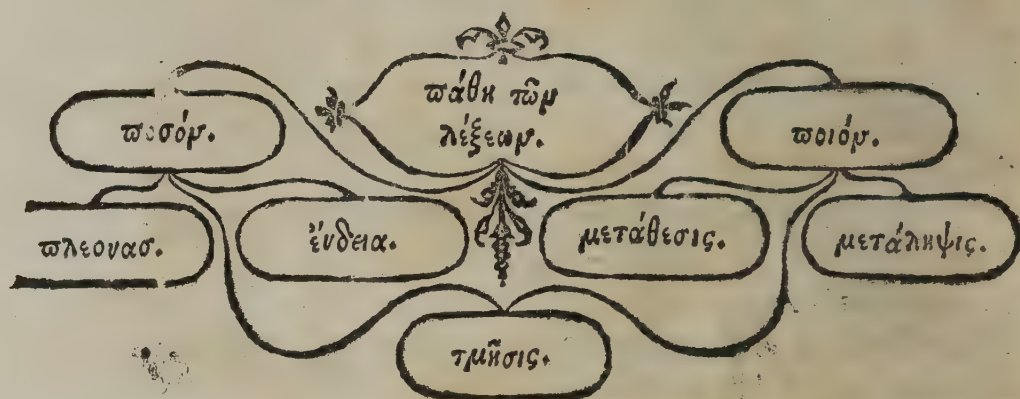 πάθη τῶν
λέξεων.
ποσόν.
ποιόν.
πλεονασ.
ἔνδεια.
μετάθεσις.
μετάληψις.
τμῆσις.